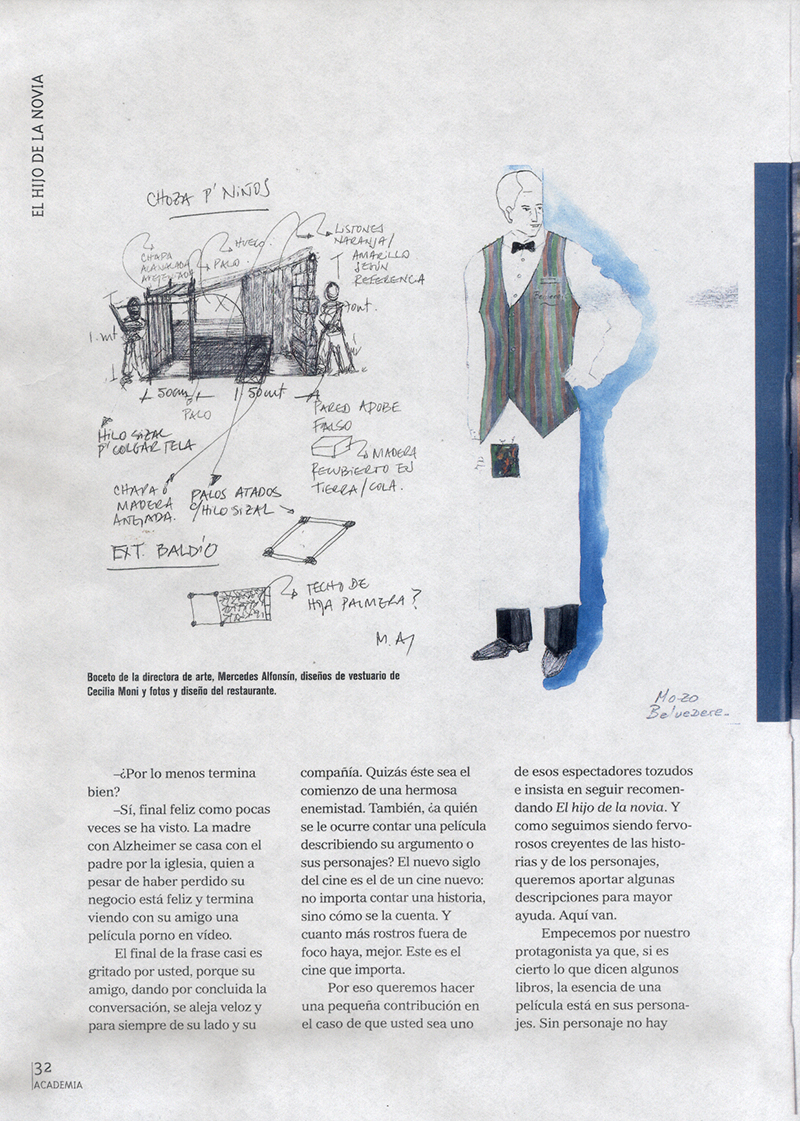 EL HIJO DE LA NOVIA
CHOZA P' NIÑOS
CHAPA
ACANALADA
HUECO
PALO
LISTONES
NARANJA/
AMARILLO
SEGÚN
REFERENCIA
1.mt
50cm
1'50mt
PALO
HILO SIZAL
P' COLGAR TELA
PARED ADOBE
FALSO
MADERA
RECUBIERTO EN
TIERRA/COLA.
CHAPA Ó
MADERA
PALOS ATADOS
C/HILO SIZAL
EXT. BALDÍO
TECHO DE
HOJA PALMERA?
Boceto de la directora de arte, Mercedes Alfonsín, diseños de vestuario de
Cecilia Moni y fotos y diseño del restaurante.
Mozo
Belvedere_
–¿Por lo menos termina
bien?
–Sí, final feliz como pocas
veces se ha visto. La madre
con Alzheimer se casa con el
padre por la iglesia, quien a
pesar de haber perdido su
negocio está feliz y termina
viendo con su amigo una
película porno en vídeo.
El final de la frase casi es
gritado por usted, porque su
amigo, dando por concluida la
conversación, se aleja veloz y
para siempre de su lado y su
compañía. Quizás éste sea el
comienzo de una hermosa
enemistad. También, ¿a quién
se le ocurre contar una película
describiendo su argumento o
sus personajes? El nuevo siglo
del cine es el de un cine nuevo:
no importa contar una historia,
sino cómo se la cuenta. Y
cuanto más rostros fuera de
foco haya, mejor. Este es el
cine que importa.
Por eso queremos hacer
una pequeña contribución en
el caso de que usted sea uno
de esos espectadores tozudos
e insista en seguir recomen-
dando El hijo de la novia. Y
como seguimos siendo fervo-
rosos creyentes de las histo-
rias y de los personajes,
queremos aportar algunas
descripciones para mayor
ayuda. Aquí van.
Empecemos por nuestro
protagonista ya que, si es
cierto lo que dicen algunos
libros, la esencia de una
película está en sus persona-
jes. Sin personaje no hay
32
ACADEMIA